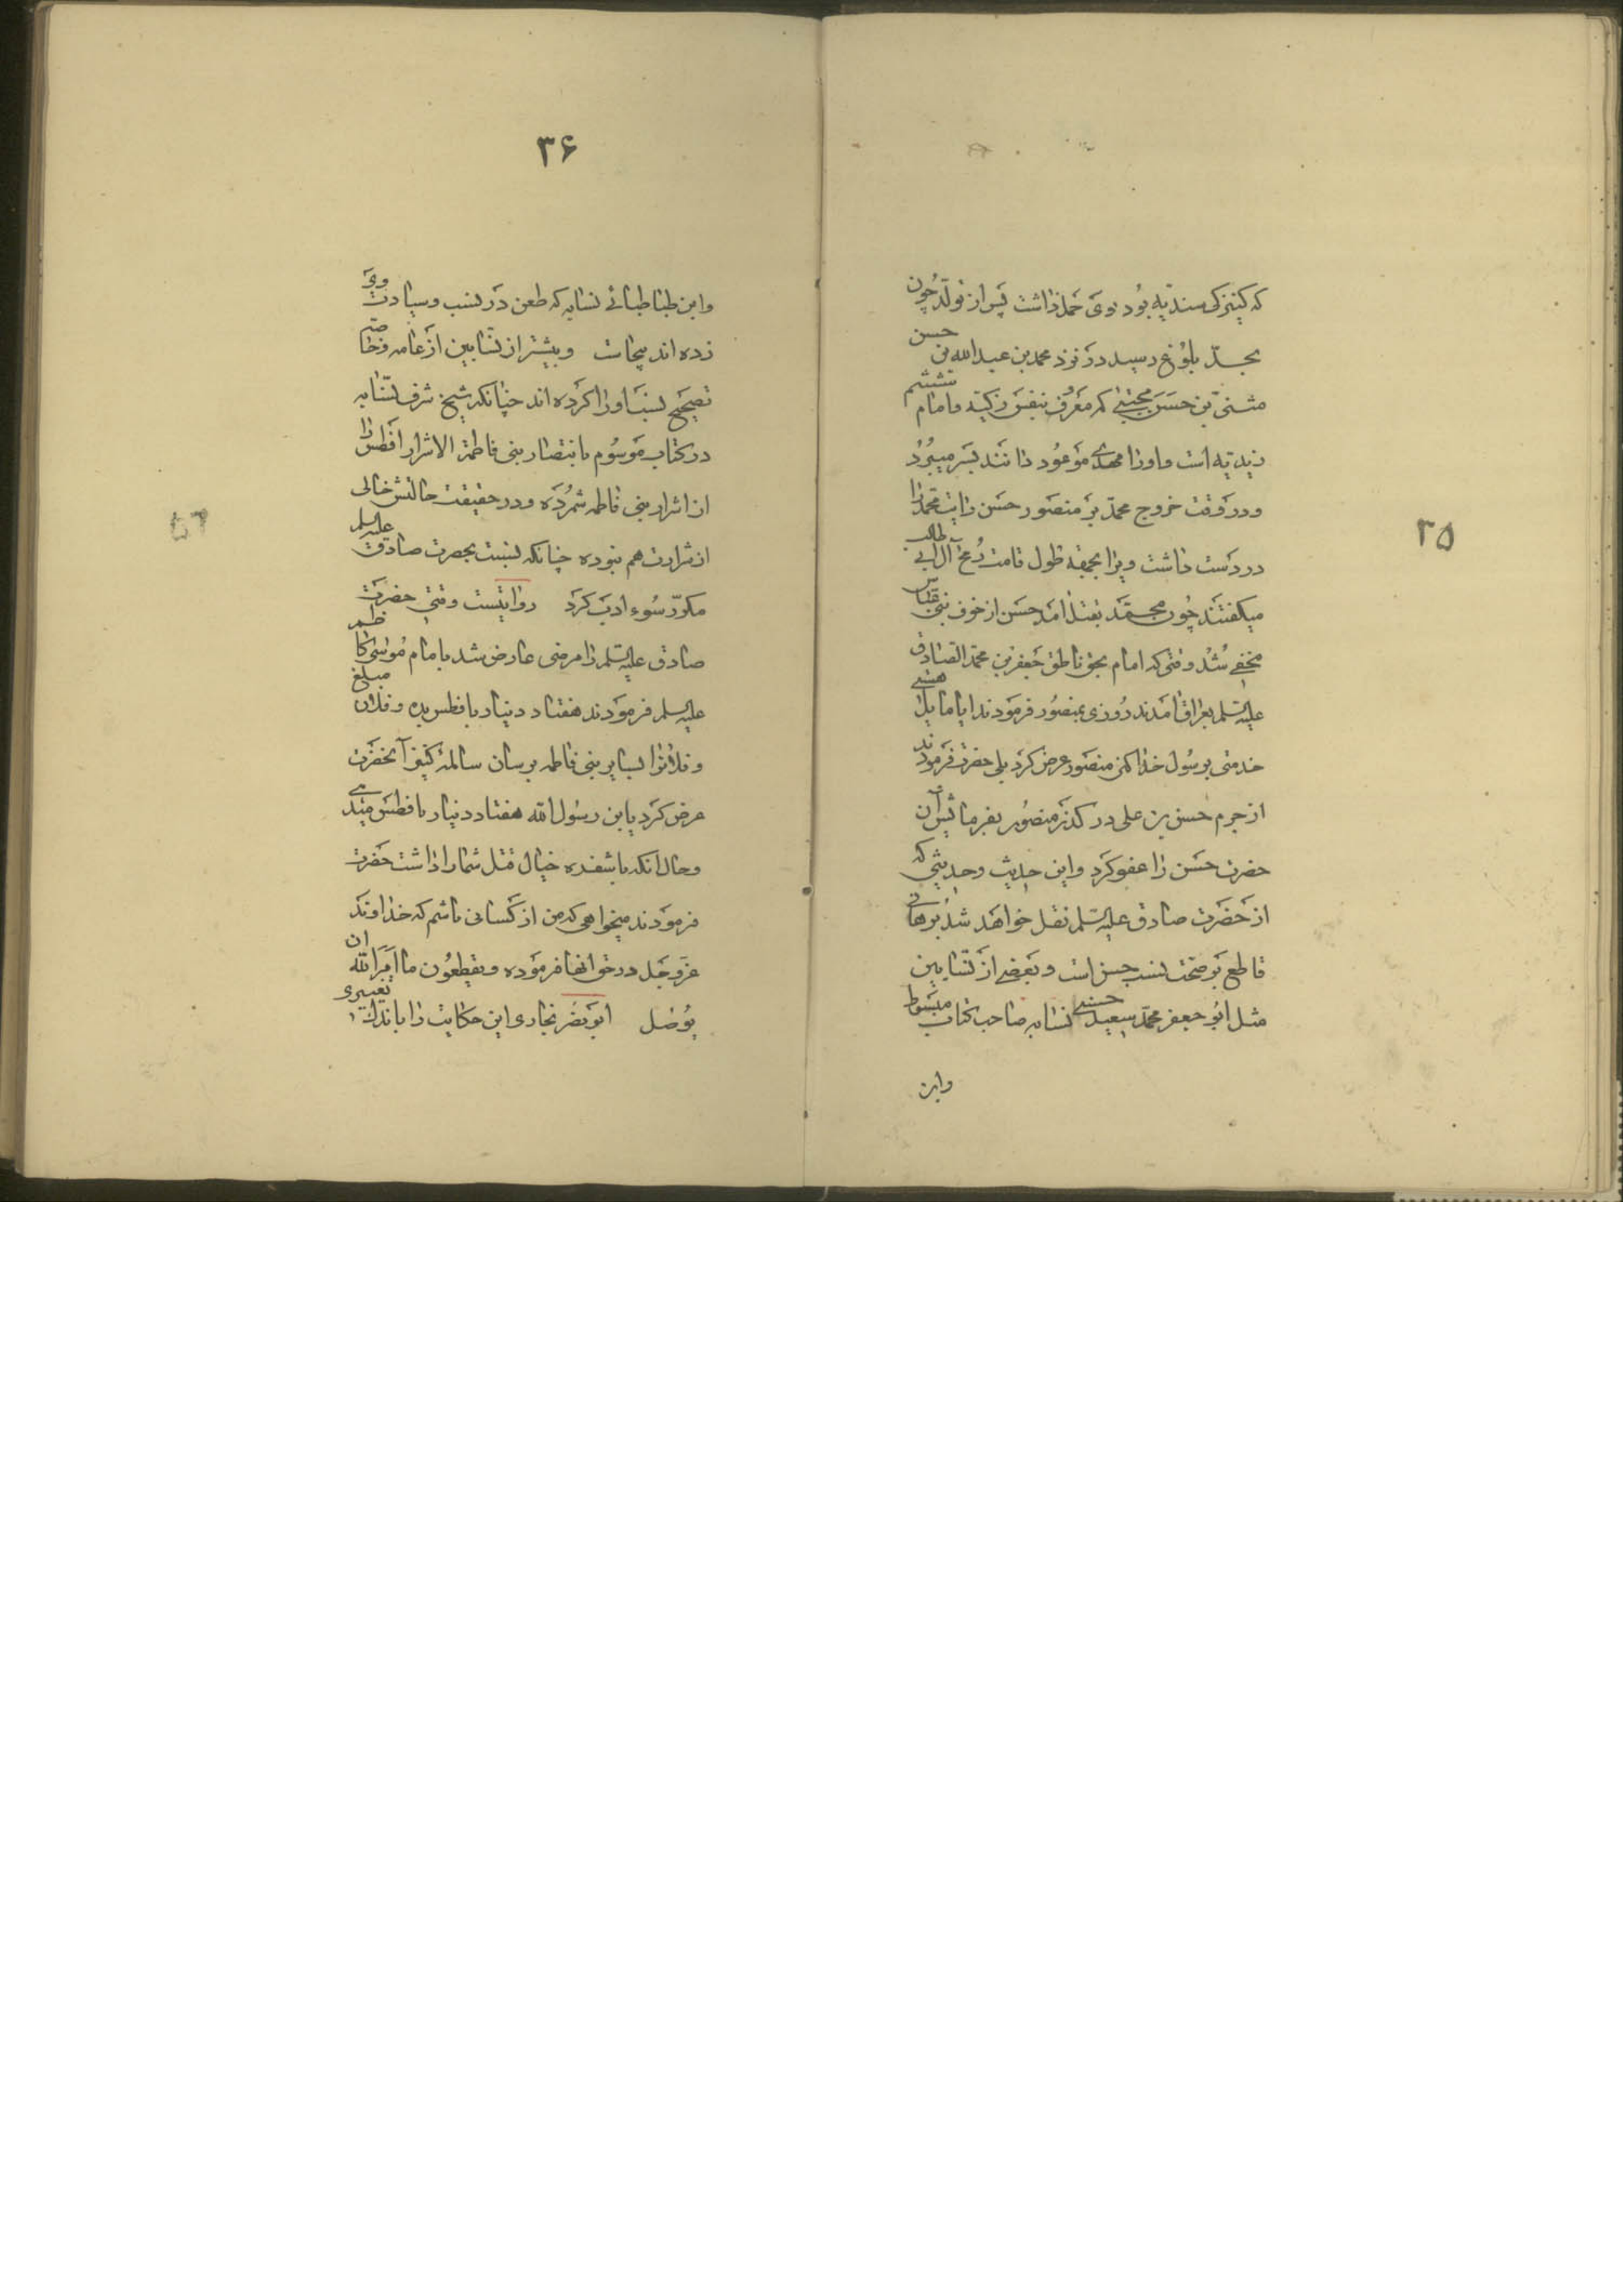 ۳۵
که کنیزکی سندیّه بود بوی حمل داشت پس از تولّد چون
بحدّ بلوغ رسید در نزد محمد بن عبدالله بن حسن
مثنی بن حسن مجتبی که معروف بنفس زکیّه و امام ششم
زیدیّه است و او را مهدی موعود دانند بسر میبرد
و در وقت خروج محمّد بر منصور حسن رایت محمّد را
در دست داشت و برا بجهة طول قامت رمح آل ابی طالب
میگفتند چون محمّد بقتل آمد حسن از خوف بنی عبّاس
مخفی شد وقتی که امام بحق ناطق جعفر بن محمّد الصّادق
علیه السّلم بعراق آمدند روزی بمنصور فرمودند ایا مایل هستی
خدمتی برسول خدا کنی منصور عرض کرد بلی حضرت فرمودند
از جرم حسن بن علی در گذر منصور بفرمایش آن
حضرت حسن را عفو کرد و این حدیث و حدیثی که
از حضرت صادق علیه السّلم نقل خواهد شد برهانی
قاطع بر صحّت نسب حسن است و بعضی از نسّابین
مثل ابو جعفر محمّد سعید حسنی نسّابه صاحب کتاب مبسوط
واین
۳۶
وابن طباطبائی نسّابه که طعن در نسب و سیادت وی
زده اند بیجاست و بیشتر از نسّابین از عامه و خاصّه
تصحیح نسب او را کرده اند چنانکه شیخ شرف نسّابه
در کتاب موسوم بانتصار بنی فاطمة الابرار افطس را
از ابرار بنی فاطمه شمرده و در حقیقت حالتش خالی
از شرارت هم نبوده چنانکه نسبت بحضرت صادق علیه السلم
مکرّر سوء ادب کرد روایتست وقتی حضرت
صادق علیه السّلم را مرضی عارض شد بامام موسی کاظم
علیه السلم فرمودند هفتاد دینار بافطس بده و فلان مبلغ
و فلانرا بسایر بنی فاطمه برسان سالمه کنیز آنحضرت
عرض کرد یابن رسول الله هفتاد دینار بافطس میدهی
و حال انکه با شفره خیال قتل شما را داشت حضرت
فرمودند میخواهی که من از کسانی باشم که خداوند
عزّ و جل در حق انها فرموده و یقطعون ما امر الله ان
یوصل ابو نصر بخاری این حکایت را باندک تغییری